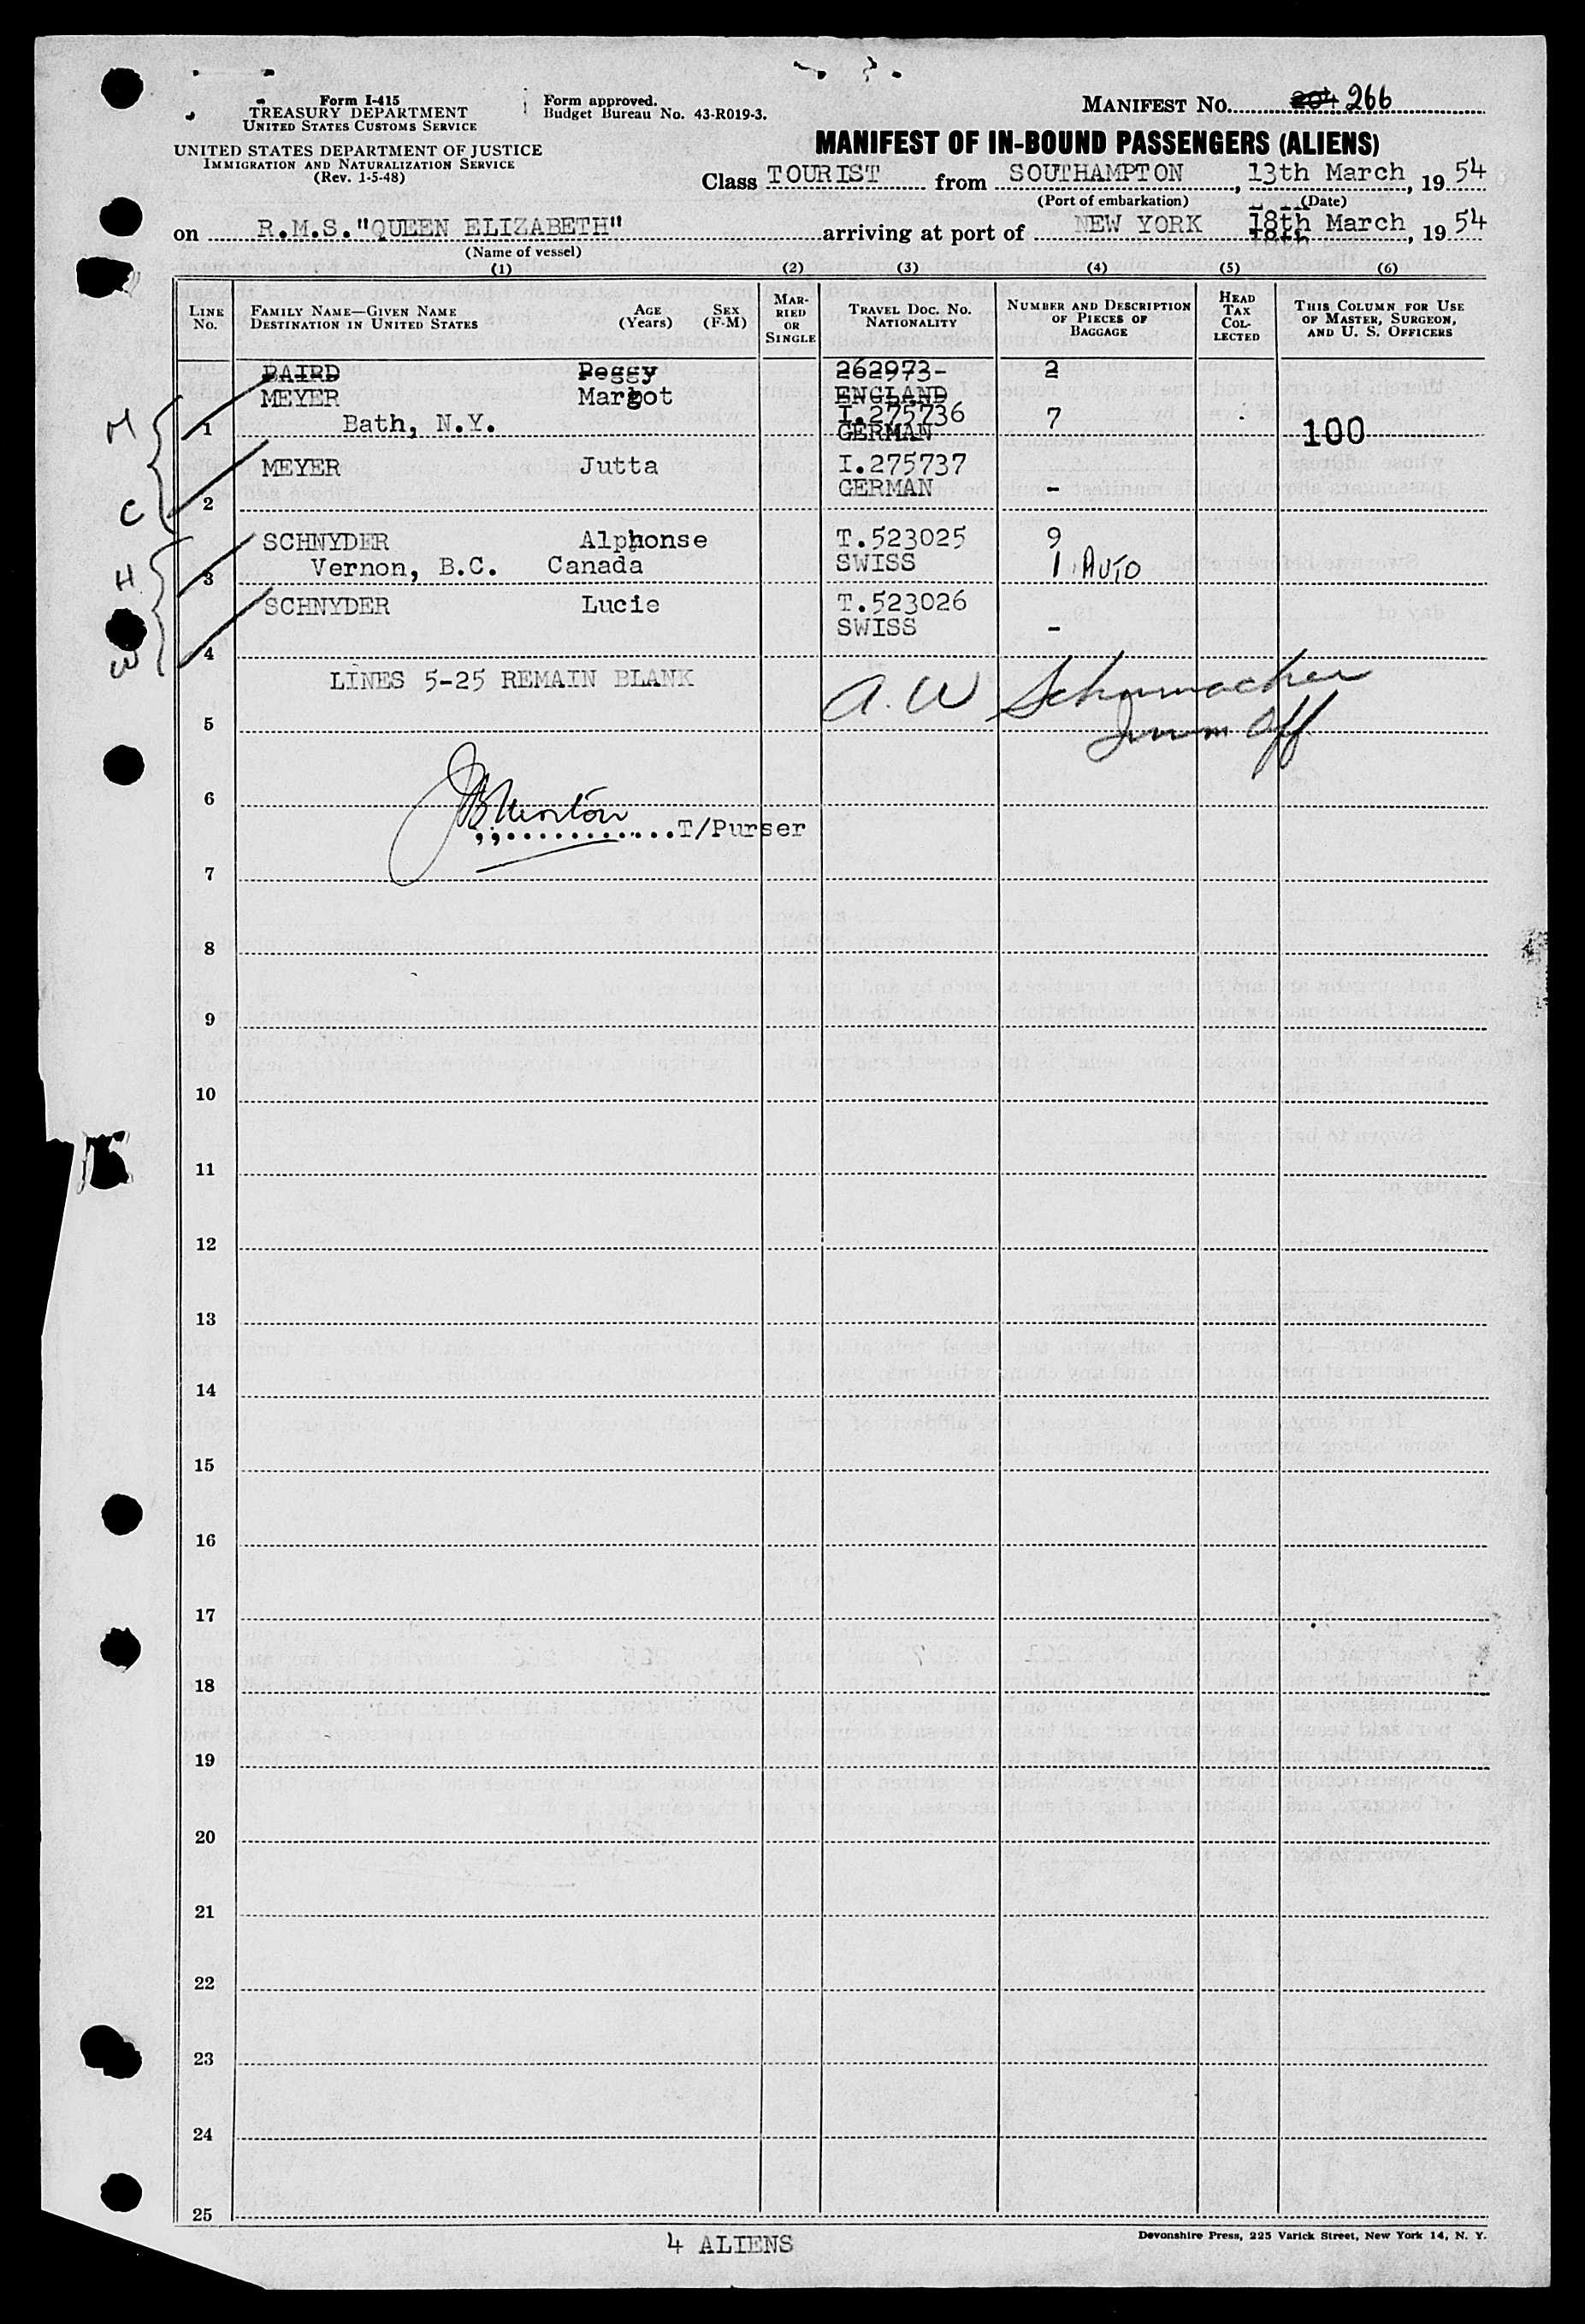 Form I-415
TREASURY DEPARTMENT
UNITED STATES CUSTOMS SERVICE
UNITED STATES DEPARTMENT OF JUSTICE
IMMIGRATION AND NATURALIZATION SERVICE
(Rev. 1-5-48)
Form approved.
Budget Bureau No. 43-R019-3.
MANIFEST NO. 204 266
MANIFEST OF IN-BOUND PASSENGERS (ALIENS)
Class TOURIST from SOUTHAMPTON, 13th March, 19 54
(Port of embarkation) (Date)
on R.M.S."QUEEN ELIZABETH" arriving at port of NEW YORK 18th March, 19 54
(Name of vessel)
(1) (2) (3) (4) (5) (6)
LINE No. FAMILY NAME—GIVEN NAME DESTINATION IN UNITED STATES AGE (Years) SEX (F-M) MARRIED OR SINGLE TRAVEL DOC. NO. NATIONALITY NUMBER AND DESCRIPTION OF PIECES OF BAGGAGE HEAD TAX COLLECTED THIS COLUMN FOR USE OF MASTER, SURGEON, AND U. S. OFFICERS
BAIRD Peggy 262973- 2
MEYER Margot ENGLAND
M 1 Bath, N.Y. I.275736 7 100
GERMAN
MEYER Jutta I.275737
C 2 GERMAN -
SCHNYDER Alphonse T.523025 9
H 3 Vernon, B.C. Canada SWISS 1 AUTO
SCHNYDER Lucie T.523026
W 4 SWISS -
LINES 5-25 REMAIN BLANK
A. W Schumacher
5 Imm Off
6
T/Purser
7
8
9
10
11
12
13
14
15
16
17
18
19
20
21
22
23
24
25
4 ALIENS
Devonshire Press, 225 Varick Street, New York 14, N. Y.